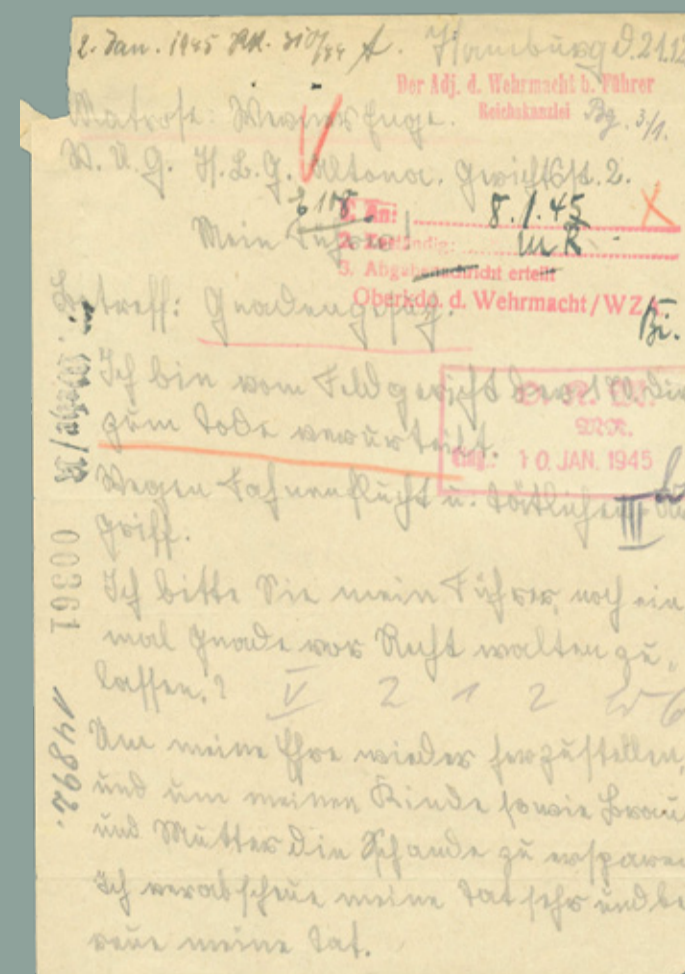 2. Jan. 1945 RK. 310/44 A. Hamburg d. 21.12
Der Adj. d. Wehrmacht b. Führer
Reichskanzlei Bg. 3/1.
Matrose: Werner Enge.
W. U. G. H. L. G. Altona. Gerichtsst. 2.
1. An: 8.1.45
Mein Führer!
2. Zuständig:
3. Abgabenachricht erteilt
Oberkdo. d. Wehrmacht/WZA
Betreff: Gnadengesuch.
Bi.
Ich bin vom Feldgericht der
zum Tode verurteilt.
Eing.: 10. JAN. 1945
Wegen Fahnenflucht u. tätlichen
III
griff.
Ich bitte Sie mein Führer, noch ein
mal Gnade vor Recht walten zu
lassen.?
V 2 1 2
Um meine Ehre wieder herzustellen,
und um meinen Kinde sowie Brau
und Mutter die Schande zu ersparen
Ich verabscheue meine Tat sehr und be
reue meine Tat.
00361
14892.